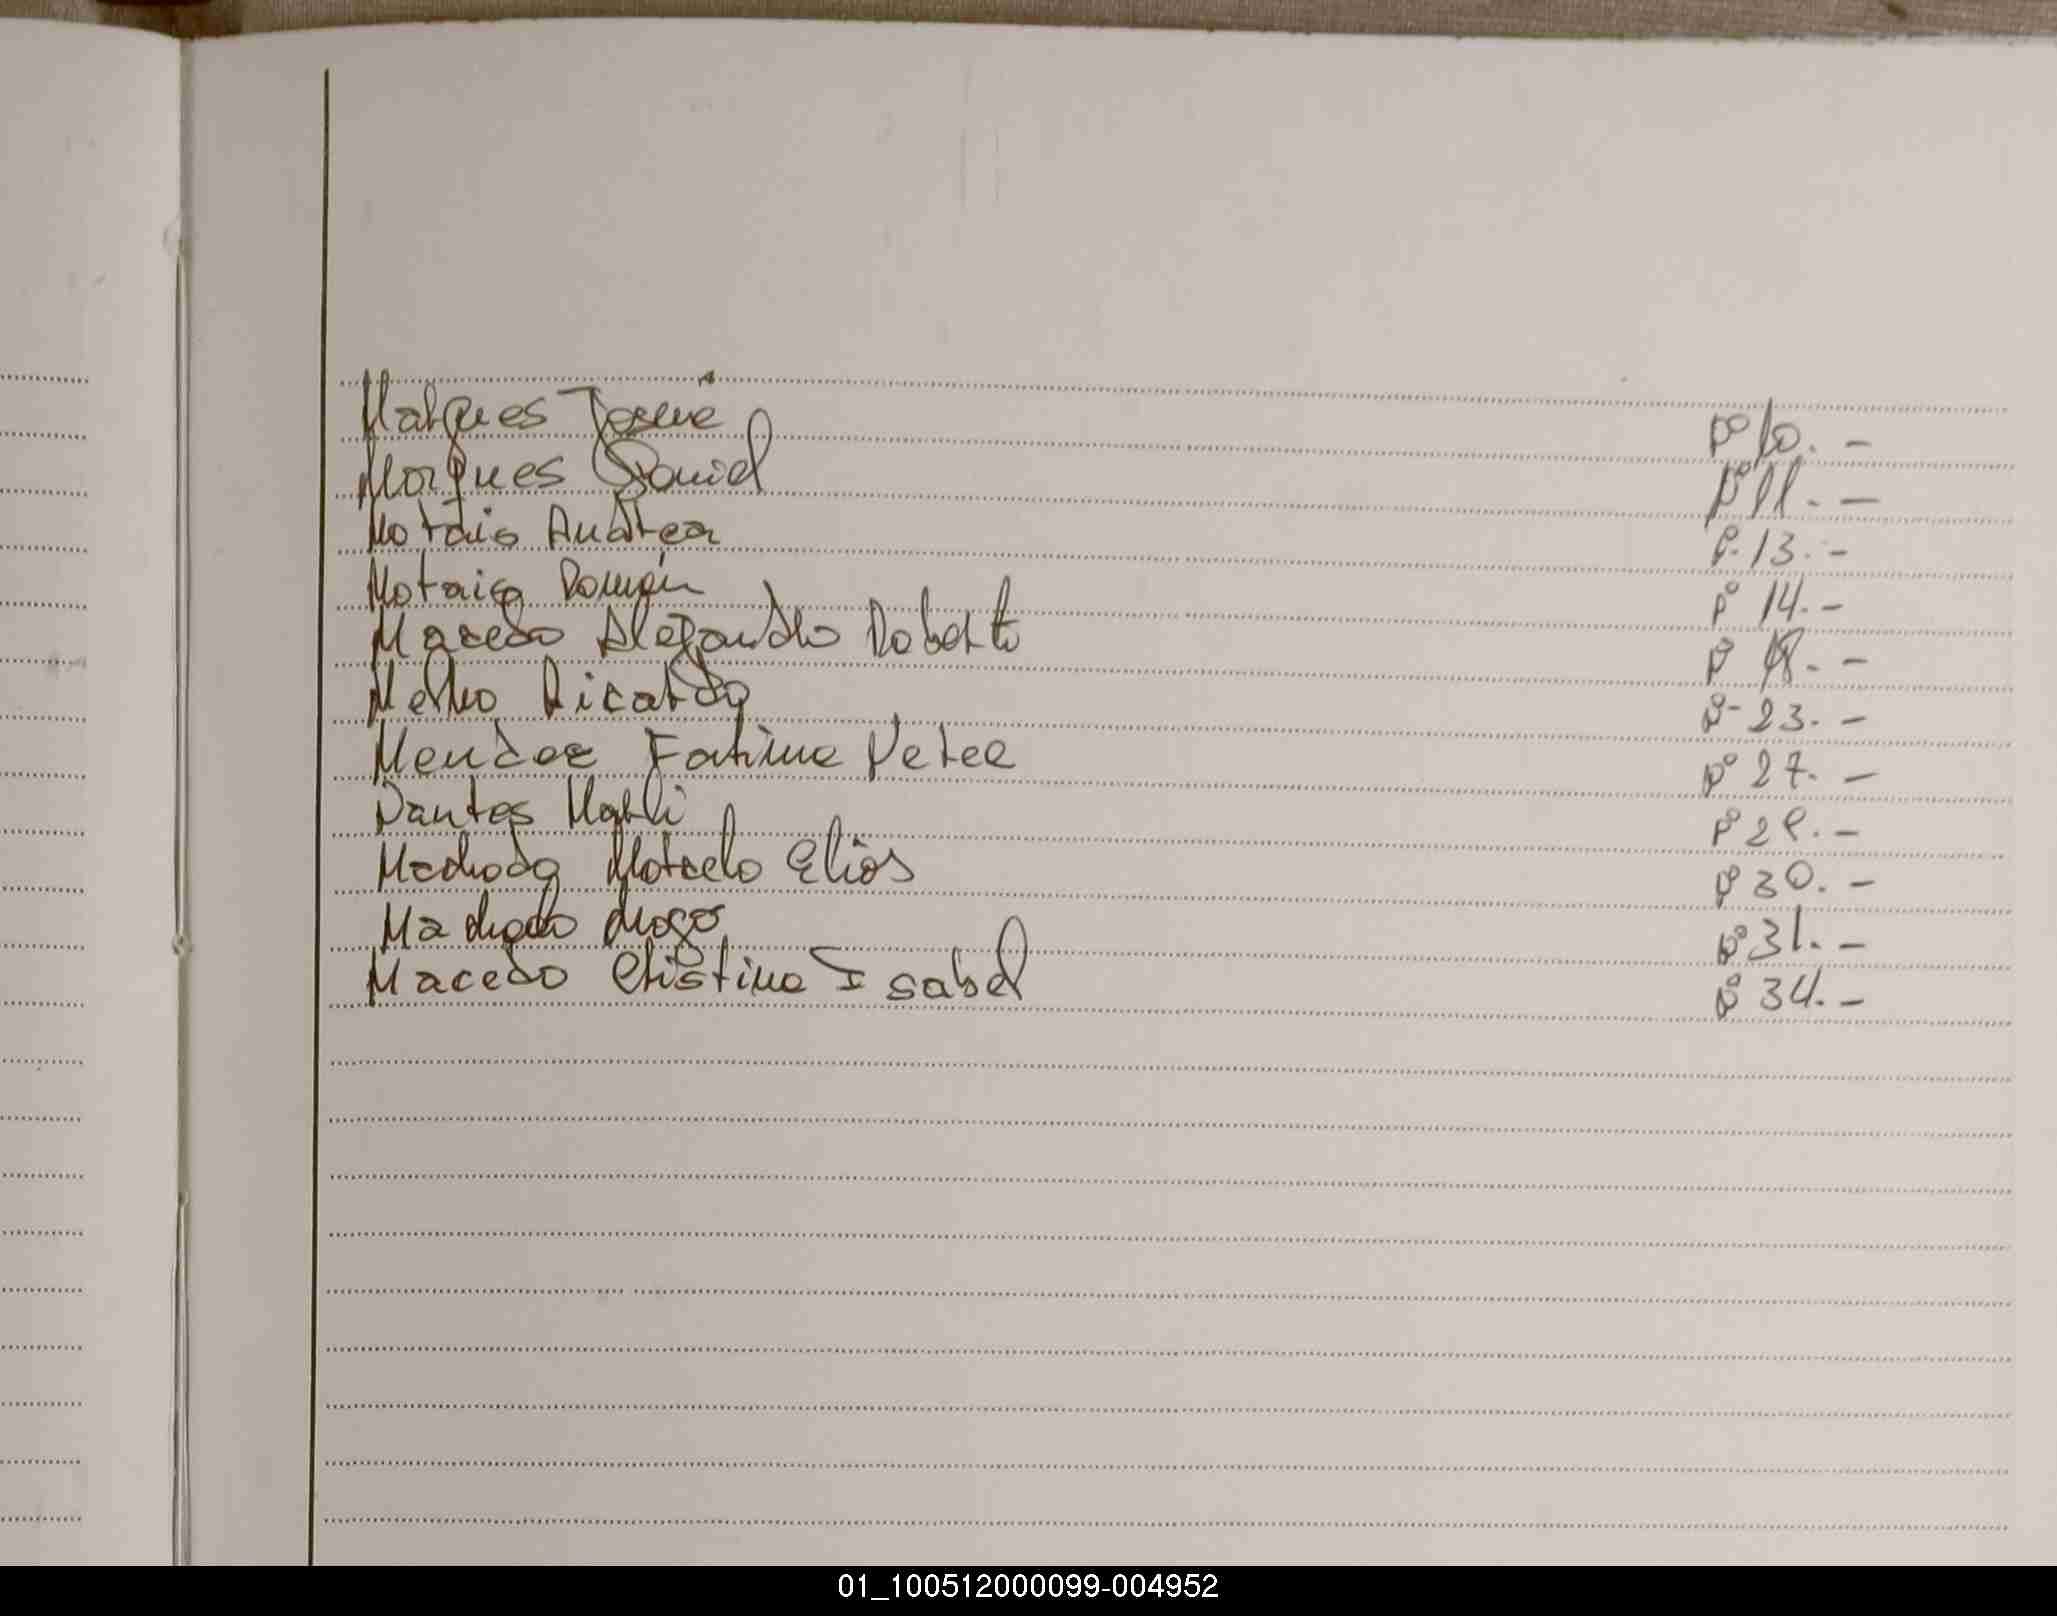 Marques Josué Pº 10. -
Marques Daniel Pº 11. -
Morais Andrea P. 13. -
Morais Román Pº 14. -
Macedo Alejandro Roberto Pº 18. -
Merko Ricardo Pº 23. -
Mendez Fatima Pº 27. -
Dantes Marli Pº 29. -
Machado Marcelo Elias Pº 30. -
Machado Pº 31. -
Macedo Cristina Isabel Pº 34. -
01_100512000099-004952